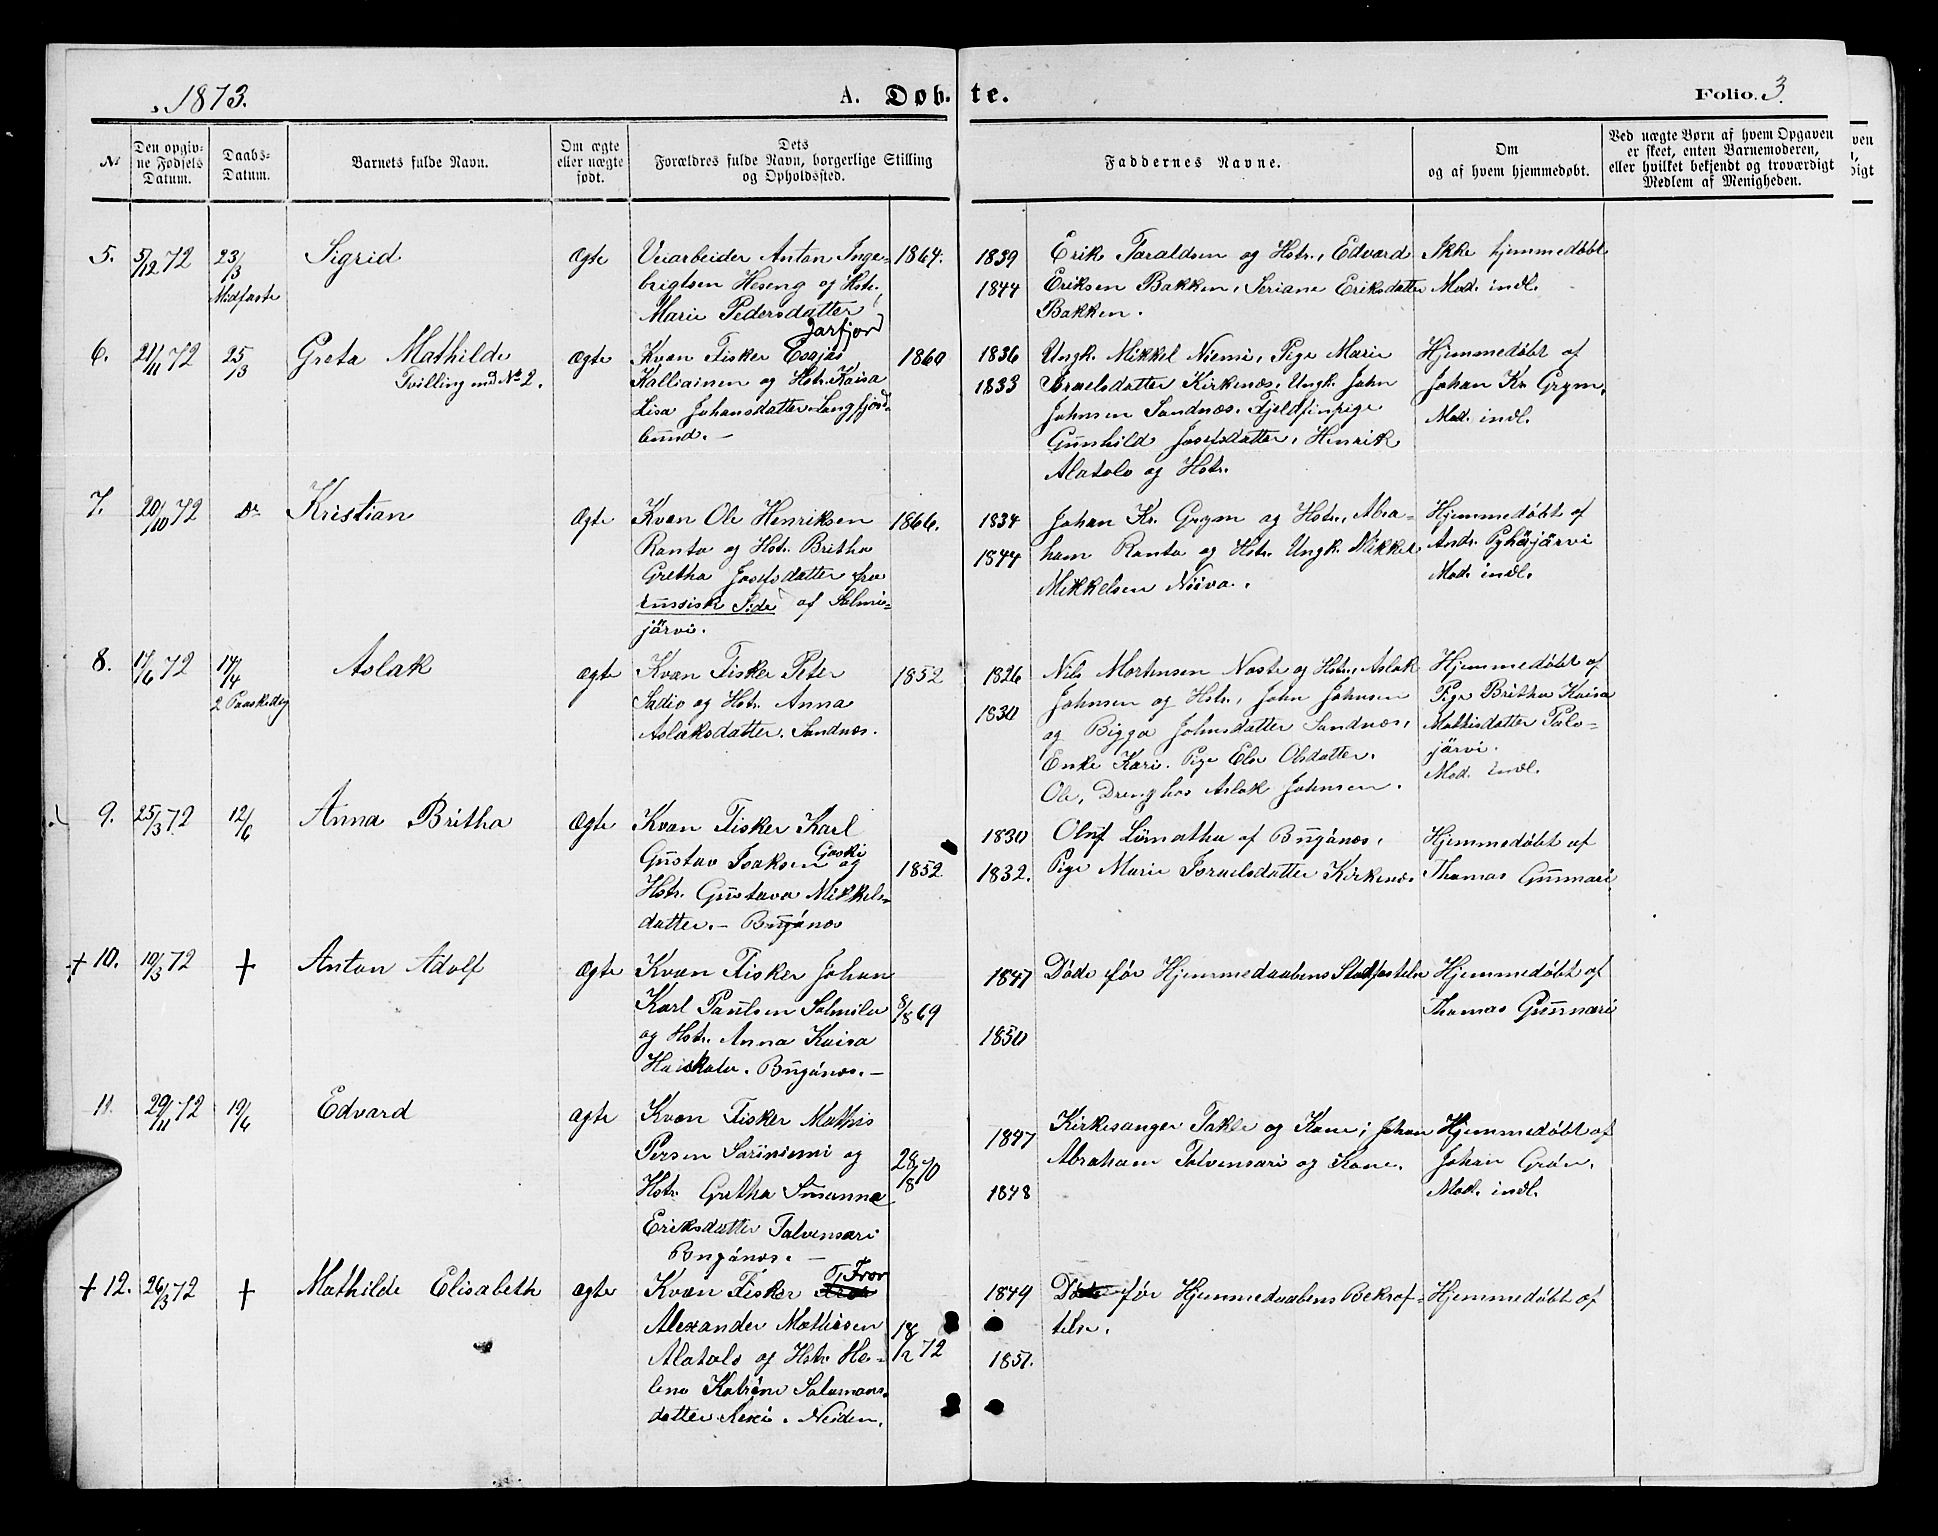 1873.
A. Døbte.
Folio 3.
№
Den opgivne Fødsels Datum.
Daabs-Datum.
Barnets fulde Navn.
Om ægte eller uægte født.
Dets Forældres fulde Navn, borgerlige Stilling og Opholdssted.
Faddernes Navne.
Om og af hvem hjemmedøbt.
Ved uægte Børn af hvem Opgaven er skeet, enten Barnemoderen, eller hvilket bekjendt og troværdigt Medlem af Menigheden.
5. 5/12 72
23/3
Midfaste
Sigrid
Ægte
Veiarbeider Anton Inge-
brigtsen Heseng og Hstr.
Marie Pedersdatter
Jarfjord
1864.
1839
1844
Erik Taraldsen og Hstr., Edvard
Eriksen Bakken, Seriane Eriksdatter
Bakken.
Ikke hjemmedøbt
Mod. indl.
6. 21/11 72
25/3
Greta Mathilde
Tvilling med № 2.
Ægte
Kvæn Fisker Esajas
Kalliainen og Hstr. Kaisa
Lisa Johansdatter. Langfjord-
bund. —
1860
1836
1833
Ungk. Mikkel Niemi, Pige Marie
Israelsdatter Kirkenæs, Ungk. John
Johnsen Sandnæs. Fjeldfinpige
Gunhild Josefsdatter, Henrik
Alatalo og Hstr.
Hjemmedøbt af
Johan Kr. Grym.
Mod. indl.
7. 20/10 72
Do
Kristian
Ægte
Kvæn Ole Henriksen
Ranta og Hstr. Britha
Gretha Josefsdatter fra
russisk Side af Salmis-
järvi.
1866.
1834
1844
Johan Kr. Grym og Hstr., Abra-
ham Ranta og Hstr. Ungk. Mikkel
Mikkelsen Niiva.
Hjemmedøbt af
Andr. Pyhäjärvi
Mod. indl.
8. 17/6 72
14/4
2 Paaskedag
Aslak
Ægte
Kvæn Fisker Peter
Sadio og Hstr. Anna
Aslaksdatter. Sandnæs.
1852
1826
1830
Nils Mortensen Naste og Hstr., Aslak
Johnsen og Hstr., John Johnsen
og Bigga Johnsdatter Sandnæs,
Enke Kari. Pige Else Olsdatter.
Ole, Dreng hos Aslak Johnsen.
Hjemmedøbt af
Pige Britha Kaisa
Mathisdatter Palo-
järvi.
Mod. indl.
9. 25/3 72
12/6
Anna Britha
Ægte
Kvæn Fisker Karl
Gustav Isaksen Gaski og
Hstr. Gustava Mikkels-
datter. — Bugønæs
1852
1830
1832.
Oluf Lümatha af Bugønæs,
Pige Marie Israelsdatter Kirkenæs.
Hjemmedøbt af
Thomas Gunnari
+ 10. 19/3 72
+
Anton Adolf
Ægte
Kvæn Fisker Johan
Karl Paulsen Salmila
og Hstr. Anna Kaisa
Haiskala. Bugønæs. —
8/8 69
1847
1850
Døde før Hjemmedaabens Stadfæstelse
Hjemmedøbt af
Thomas Gunnari
11. 29/11 72
19/6
Edvard
Ægte
Kvæn Fisker Mathis
Persen Sariniemi og
Hstr. Gretha Susanna
Eriksdatter Talvensari
Bugønæs. —
28/8 70
1847
1848
Kirkesanger Takle og Kone; Johan
Abraham Talvensari og Kone.
Hjemmedøbt af
Johan Grøn.
Mod. indl.
+ 12. 26/3 72
+
Mathilde Elisabeth
Ægte
Kvæn Fisker
Alexander Mathisen
Alatalo og Hstr. He-
lena Katrine Salamons-
datter. Neiden.
18/2 72
1849
1851.
Døde før Hjemmedaabens Bekræf-
telse.
Hjemmedøbt af